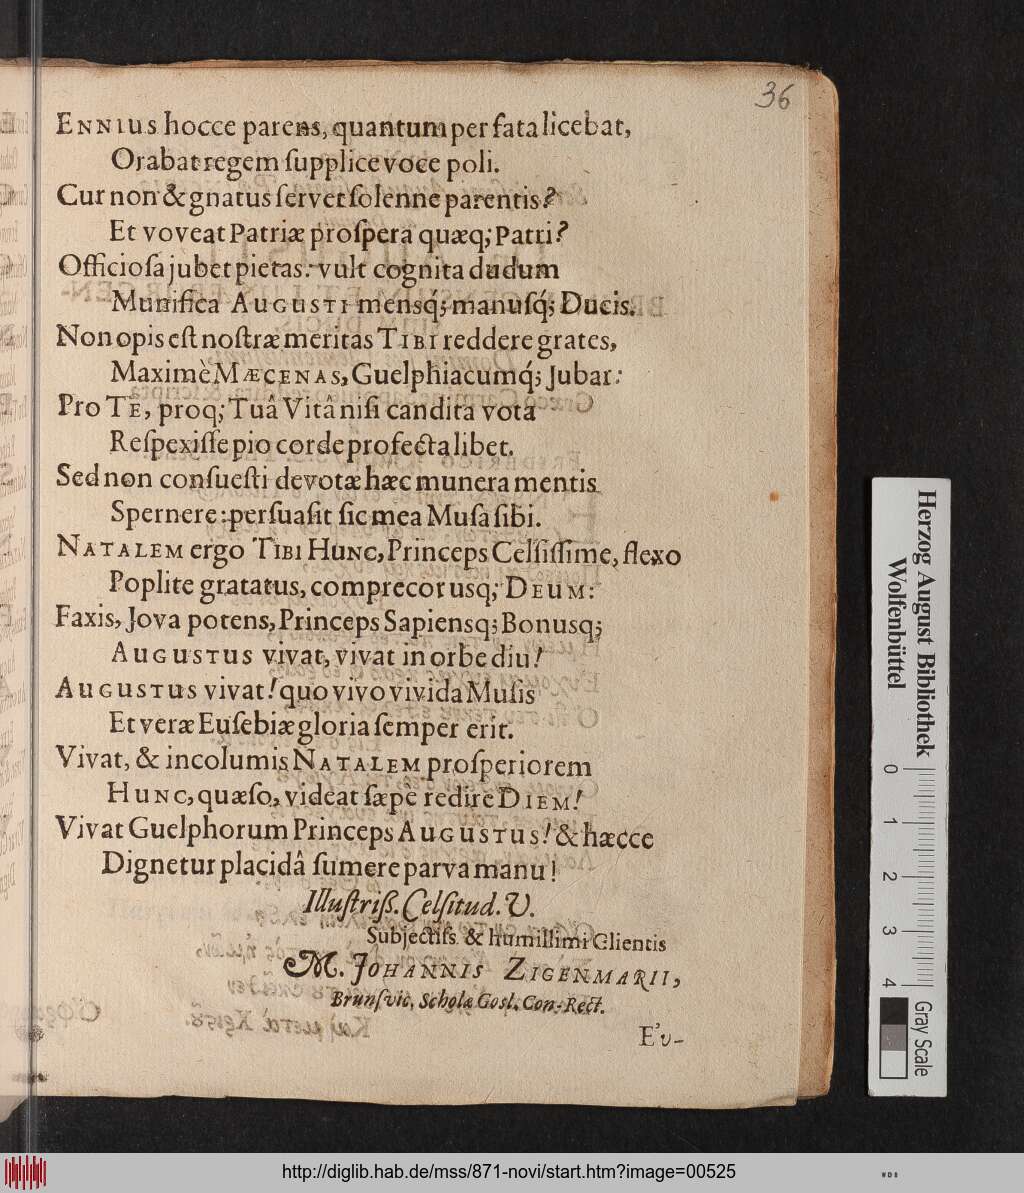 36
ENNIUS hocce parens, quantum per fata licebat,
Orabat regem ſupplice voce poli.
Cur non & gnatus ſervet ſolenne parentis?
Et voveat Patriæ proſpera quæq; Patri?
Officioſa jubet pietas: vult cognita dudum
Munifica AUGUSTI mensq́; manuſq́; Ducis.
Non opis eſt noſtræ meritas TIBI reddere grates,
Maximè MÆCENAS, Guelphiacumq́; Jubar:
Pro TE, proq; Tuâ Vitâ niſi candita vota
Reſpexiſſe pio corde profecta libet.
Sed non conſueſti devotæ hæc munera mentis
Spernere: perſuaſit ſic mea Muſa ſibi.
NATALEM ergo TIBI HUNC, Princeps Celſiſſime, flexo
Poplite gratatus, comprecor usq; DEUM:
Faxis, Jova potens, Princeps Sapiensq; Bonusq;
AUGUSTUS vivat, vivat in orbe diu!
AUGUSTUS vivat! quo vivo vivida Muſis
Et veræ Euſebiæ gloria ſemper erit.
Vivat, & incolumis NATALEM proſperiorem
HUNC, quæſo, videat ſæpè redire DIEM!
Vivat Guelphorum Princeps AUGUSTUS! & hæcce
Dignetur placidâ ſumere parva manu!
Illuſtriß. Celſitud. V.
Subjectiſs. & humillimi Clientis
M. JOHANNIS ZIGENMARII,
Brunſvic. Scholæ Gosl. Con-Rect.
E'υ-
Herzog August Bibliothek
Wolfenbüttel
0 1 2 3 4
Gray Scale
http://diglib.hab.de/mss/871-novi/start.htm?image=00525
WDB